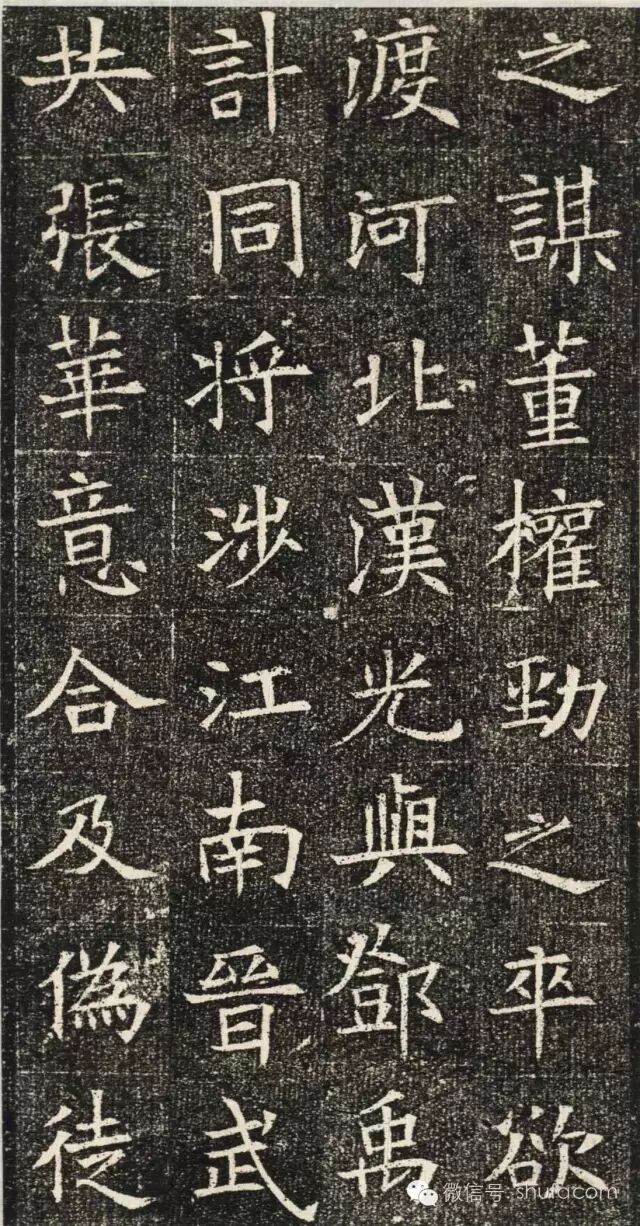 之謀董權勁之卒欲
渡河北漢光與鄧禹
計同將涉江南晉武
共張華意合及偽徒
微信号: shufacom